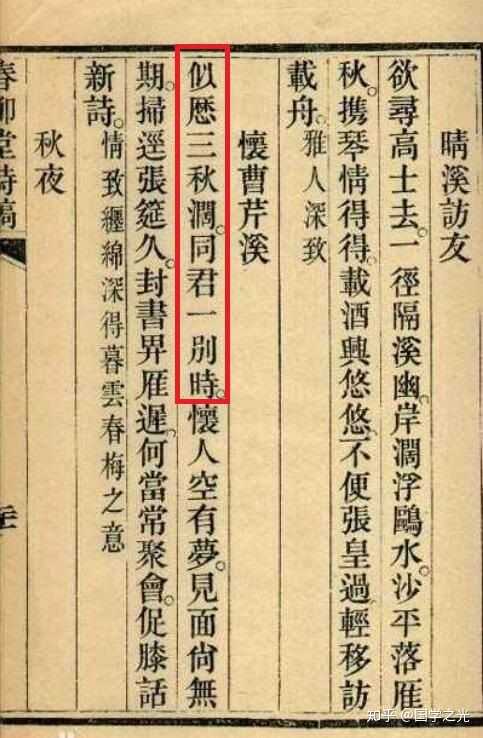 晴溪訪友
欲尋高士去。一徑隔溪幽。岸濶浮鷗水。沙平落雁
秋。携琴情得得。載酒興悠悠。不便張皇過。輕移訪
載舟。雅人深致
懷曹芹溪
似歴三秋濶。同君一別時。懷人空有夢。見面尙無
期。掃逕張筵久。封書畀雁遲。何當常聚會。促膝話
新詩。情致纒綿深得暮雲春梅之意
秋夜
春柳堂詩稿
知乎 @国学之光